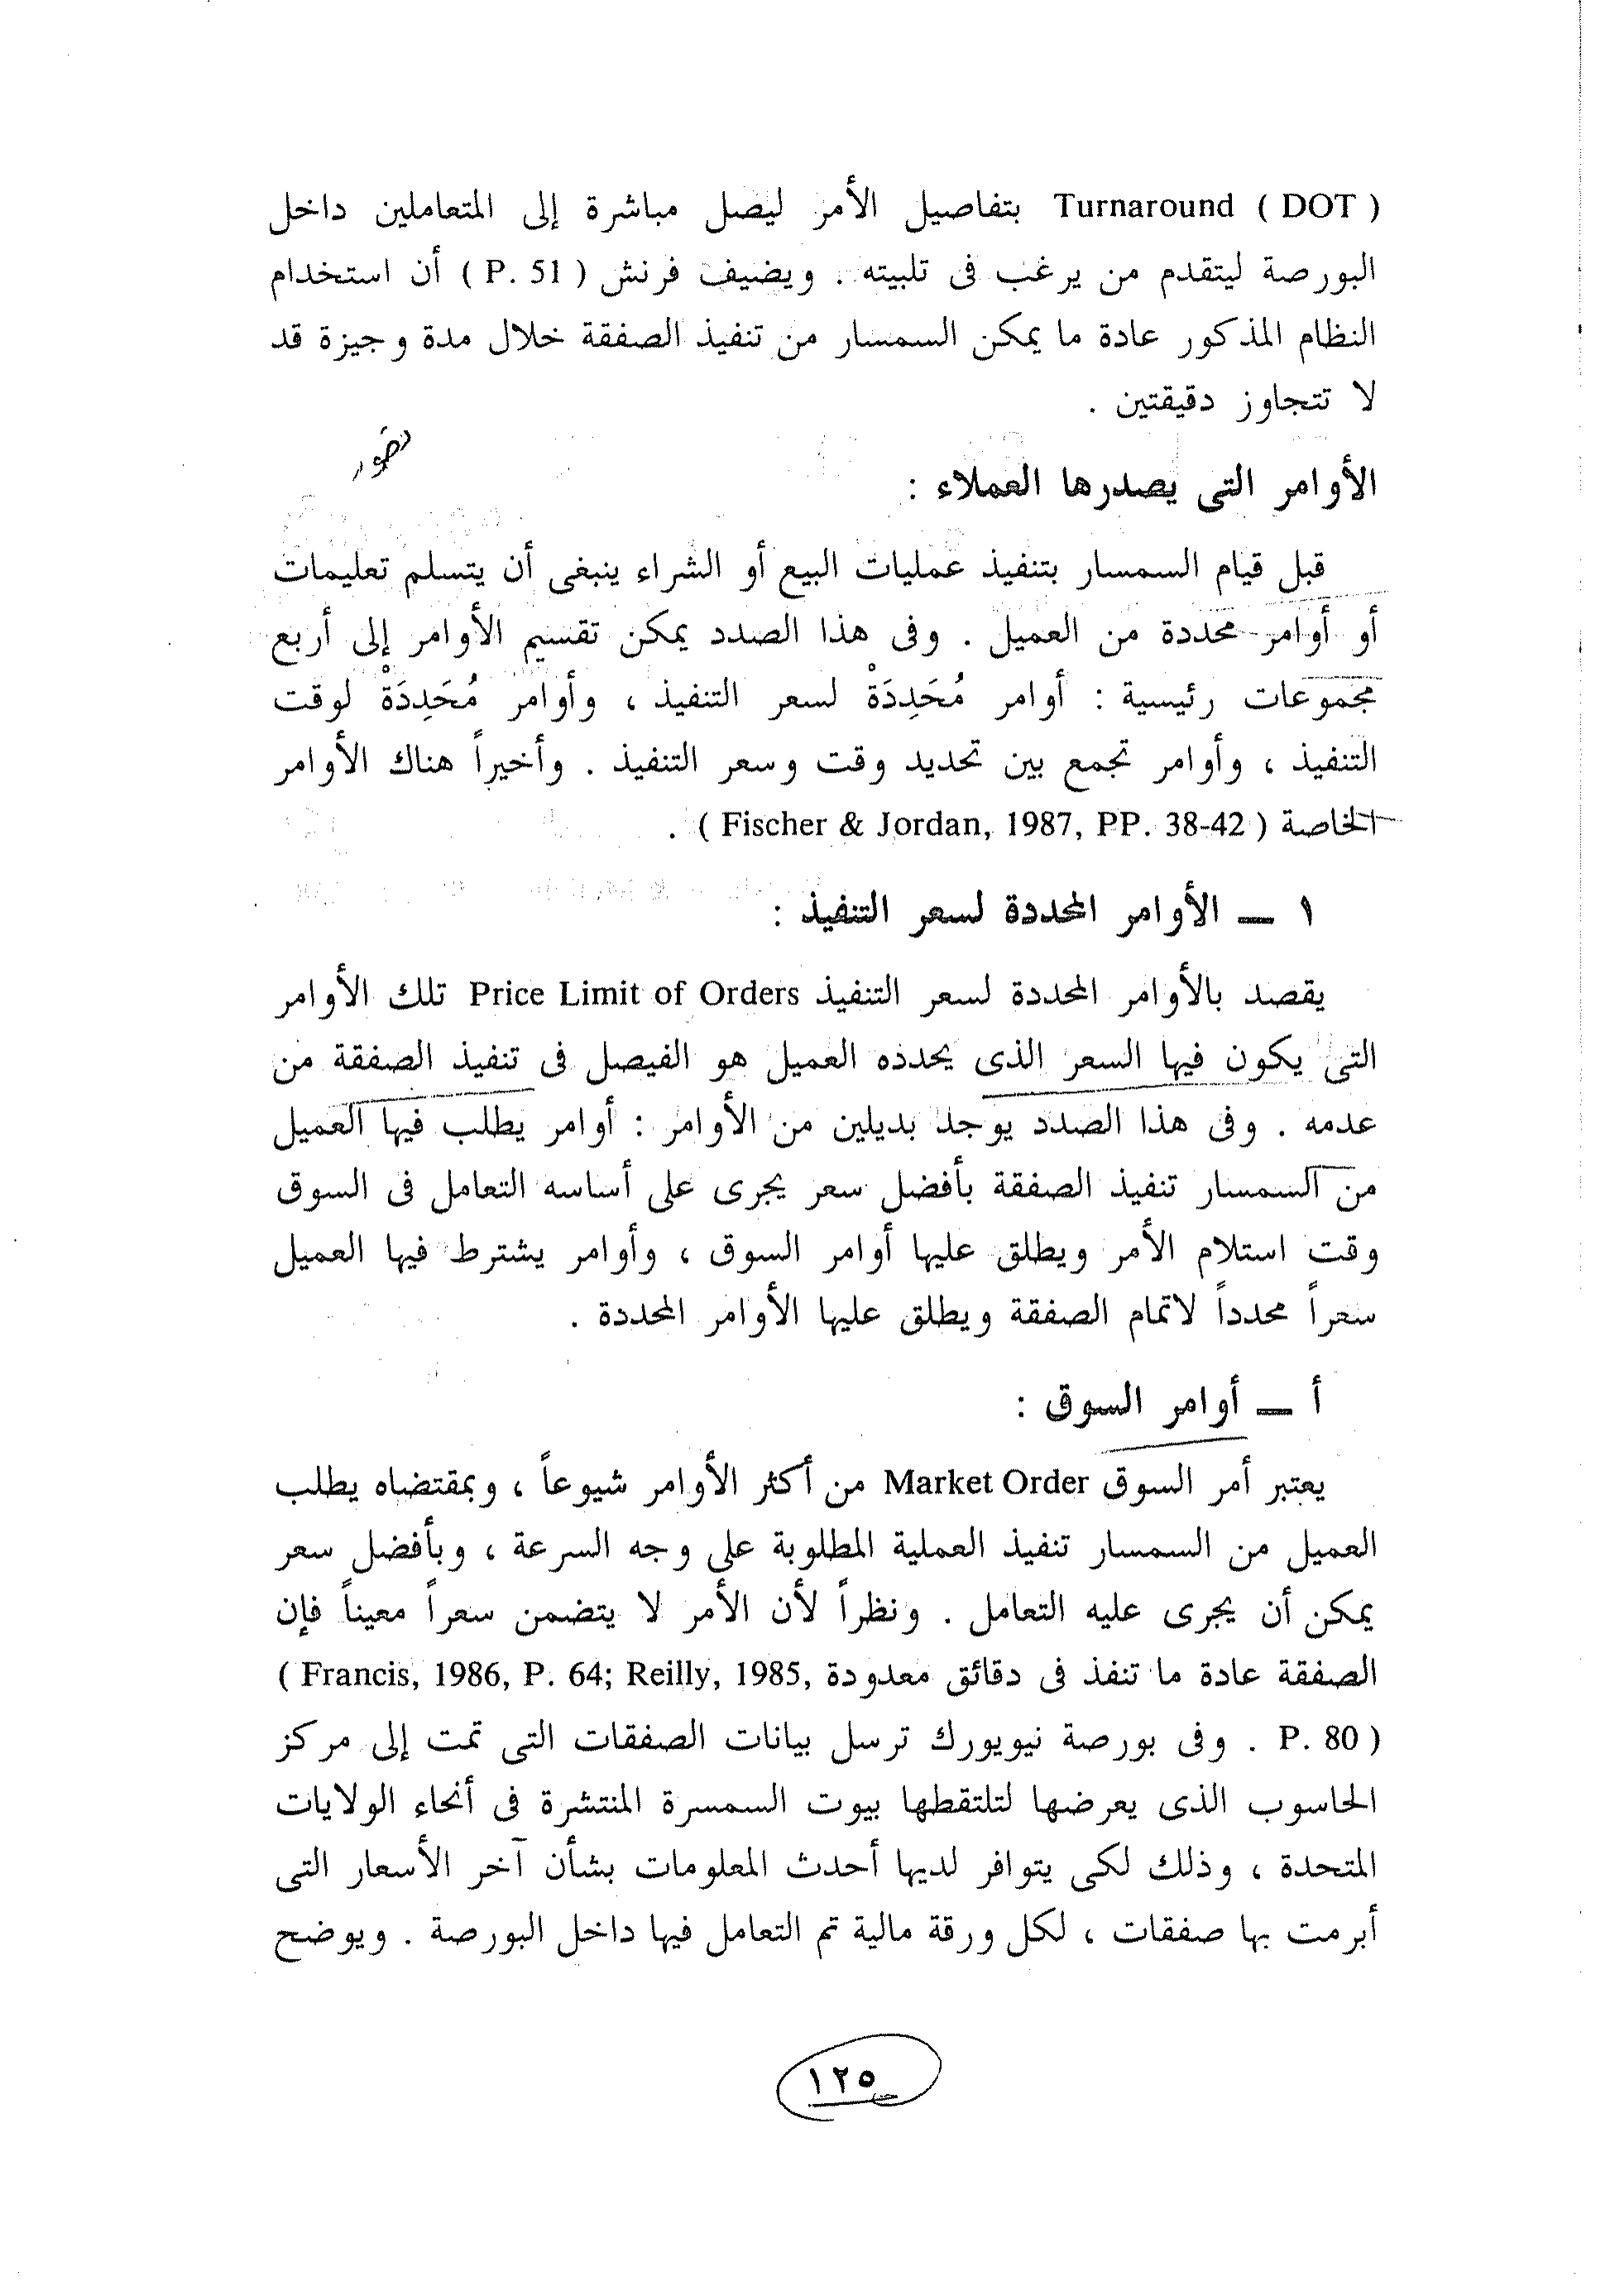 Turnaround ( DOT ) بتفاصيل الأمر ليصل مباشرة إلى المتعاملين داخل
البورصة ليتقدم من يرغب فى تلبيته . ويضيف فرنش ( P. 51 ) أن استخدام
النظام المذكور عادة ما يمكن السمسار من تنفيذ الصفقة خلال مدة وجيزة قد
لا تتجاوز دقيقتين .
الأوامر التى يصدرها العملاء :
قبل قيام السمسار بتنفيذ عمليات البيع أو الشراء ينبغى أن يتسلم تعليمات
أو أوامر محددة من العميل . وفى هذا الصدد يمكن تقسيم الأوامر إلى أربع
مجموعات رئيسية : أوامر مُحَدِدَةْ لسعر التنفيذ ، وأوامر مُحَدِدَةْ لوقت
التنفيذ ، وأوامر تجمع بين تحديد وقت وسعر التنفيذ . وأخيراً هناك الأوامر
الخاصة ( Fischer & Jordan, 1987, PP. 38-42 ) .
١ ــ الأوامر المحددة لسعر التنفيذ :
يقصد بالأوامر المحددة لسعر التنفيذ Price Limit of Orders تلك الأوامر
التى يكون فيها السعر الذى يحدده العميل هو الفيصل فى تنفيذ الصفقة من
عدمه . وفى هذا الصدد يوجد بديلين من الأوامر : أوامر يطلب فيها العميل
من السمسار تنفيذ الصفقة بأفضل سعر يجرى على أساسه التعامل فى السوق
وقت استلام الأمر ويطلق عليها أوامر السوق ، وأوامر يشترط فيها العميل
سعراً محدداً لاتمام الصفقة ويطلق عليها الأوامر المحددة .
أ ــ أوامر السوق :
يعتبر أمر السوق Market Order من أكثر الأوامر شيوعاً ، وبمقتضاه يطلب
العميل من السمسار تنفيذ العملية المطلوبة على وجه السرعة ، وبأفضل سعر
يمكن أن يجرى عليه التعامل . ونظراً لأن الأمر لا يتضمن سعراً معيناً فإن
الصفقة عادة ما تنفذ فى دقائق معدودة ( Francis, 1986, P. 64; Reilly, 1985,
P. 80 ) . وفى بورصة نيويورك ترسل بيانات الصفقات التى تمت إلى مركز
الحاسوب الذى يعرضها لتلتقطها بيوت السمسرة المنتشرة فى أنحاء الولايات
المتحدة ، وذلك لكى يتوافر لديها أحدث المعلومات بشأن آخر الأسعار التى
أبرمت بها صفقات ، لكل ورقة مالية تم التعامل فيها داخل البورصة . ويوضح
١٢٥